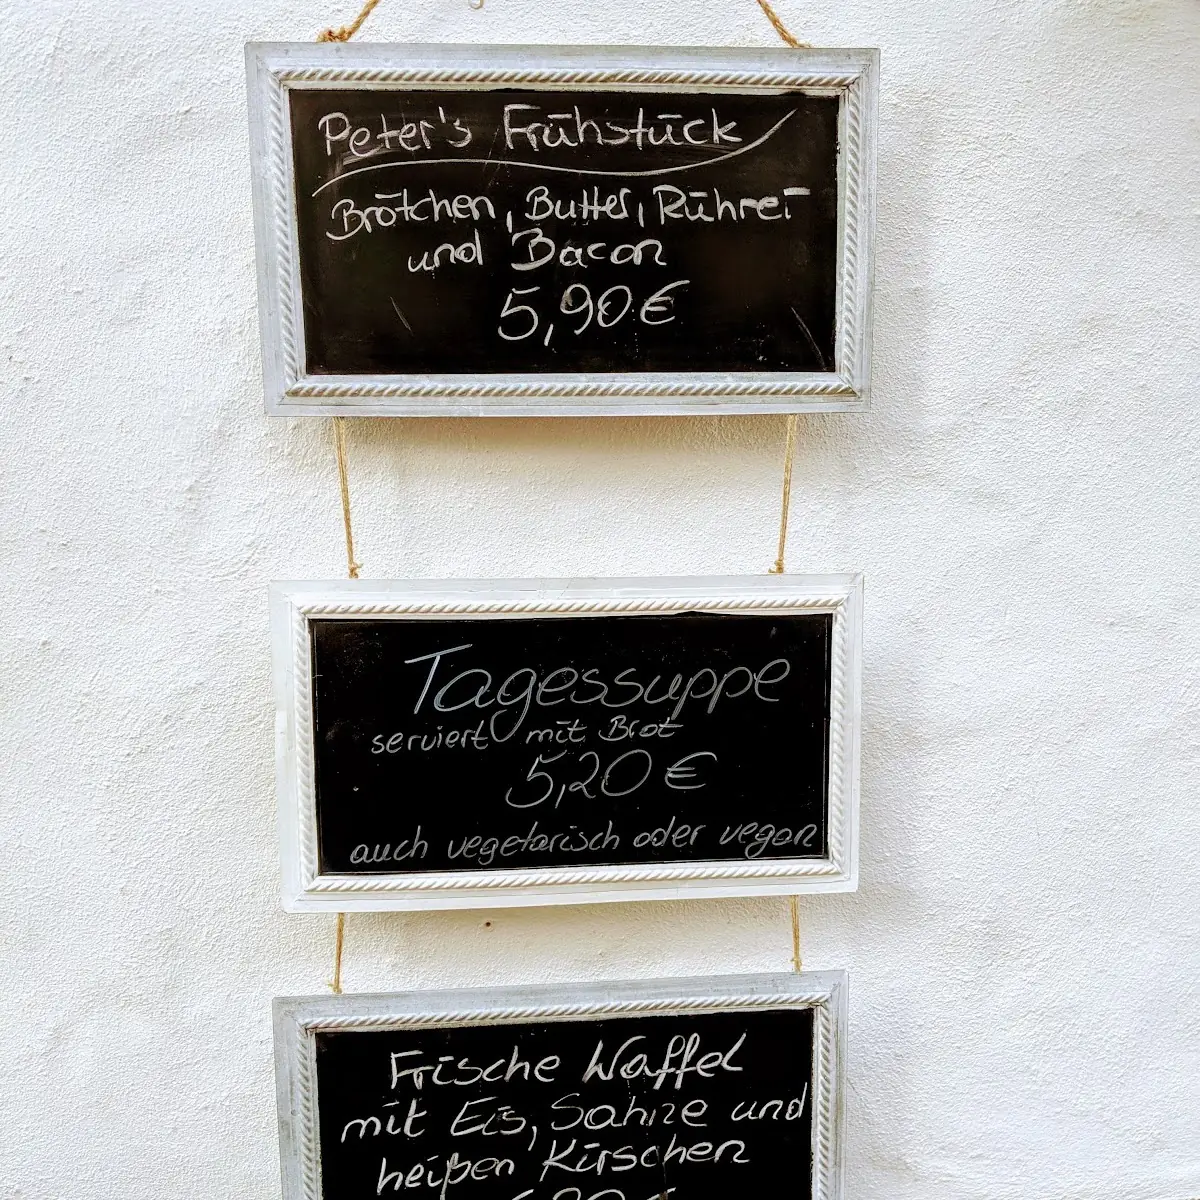 Peter's Frühstück
Brötchen, Butter, Rührei
und Bacon
5,90 €
Tagessuppe
serviert mit Brot
5,20 €
auch vegetarisch oder vegan
Frische Waffel
mit Eis, Sahne und
heißen Kirschen